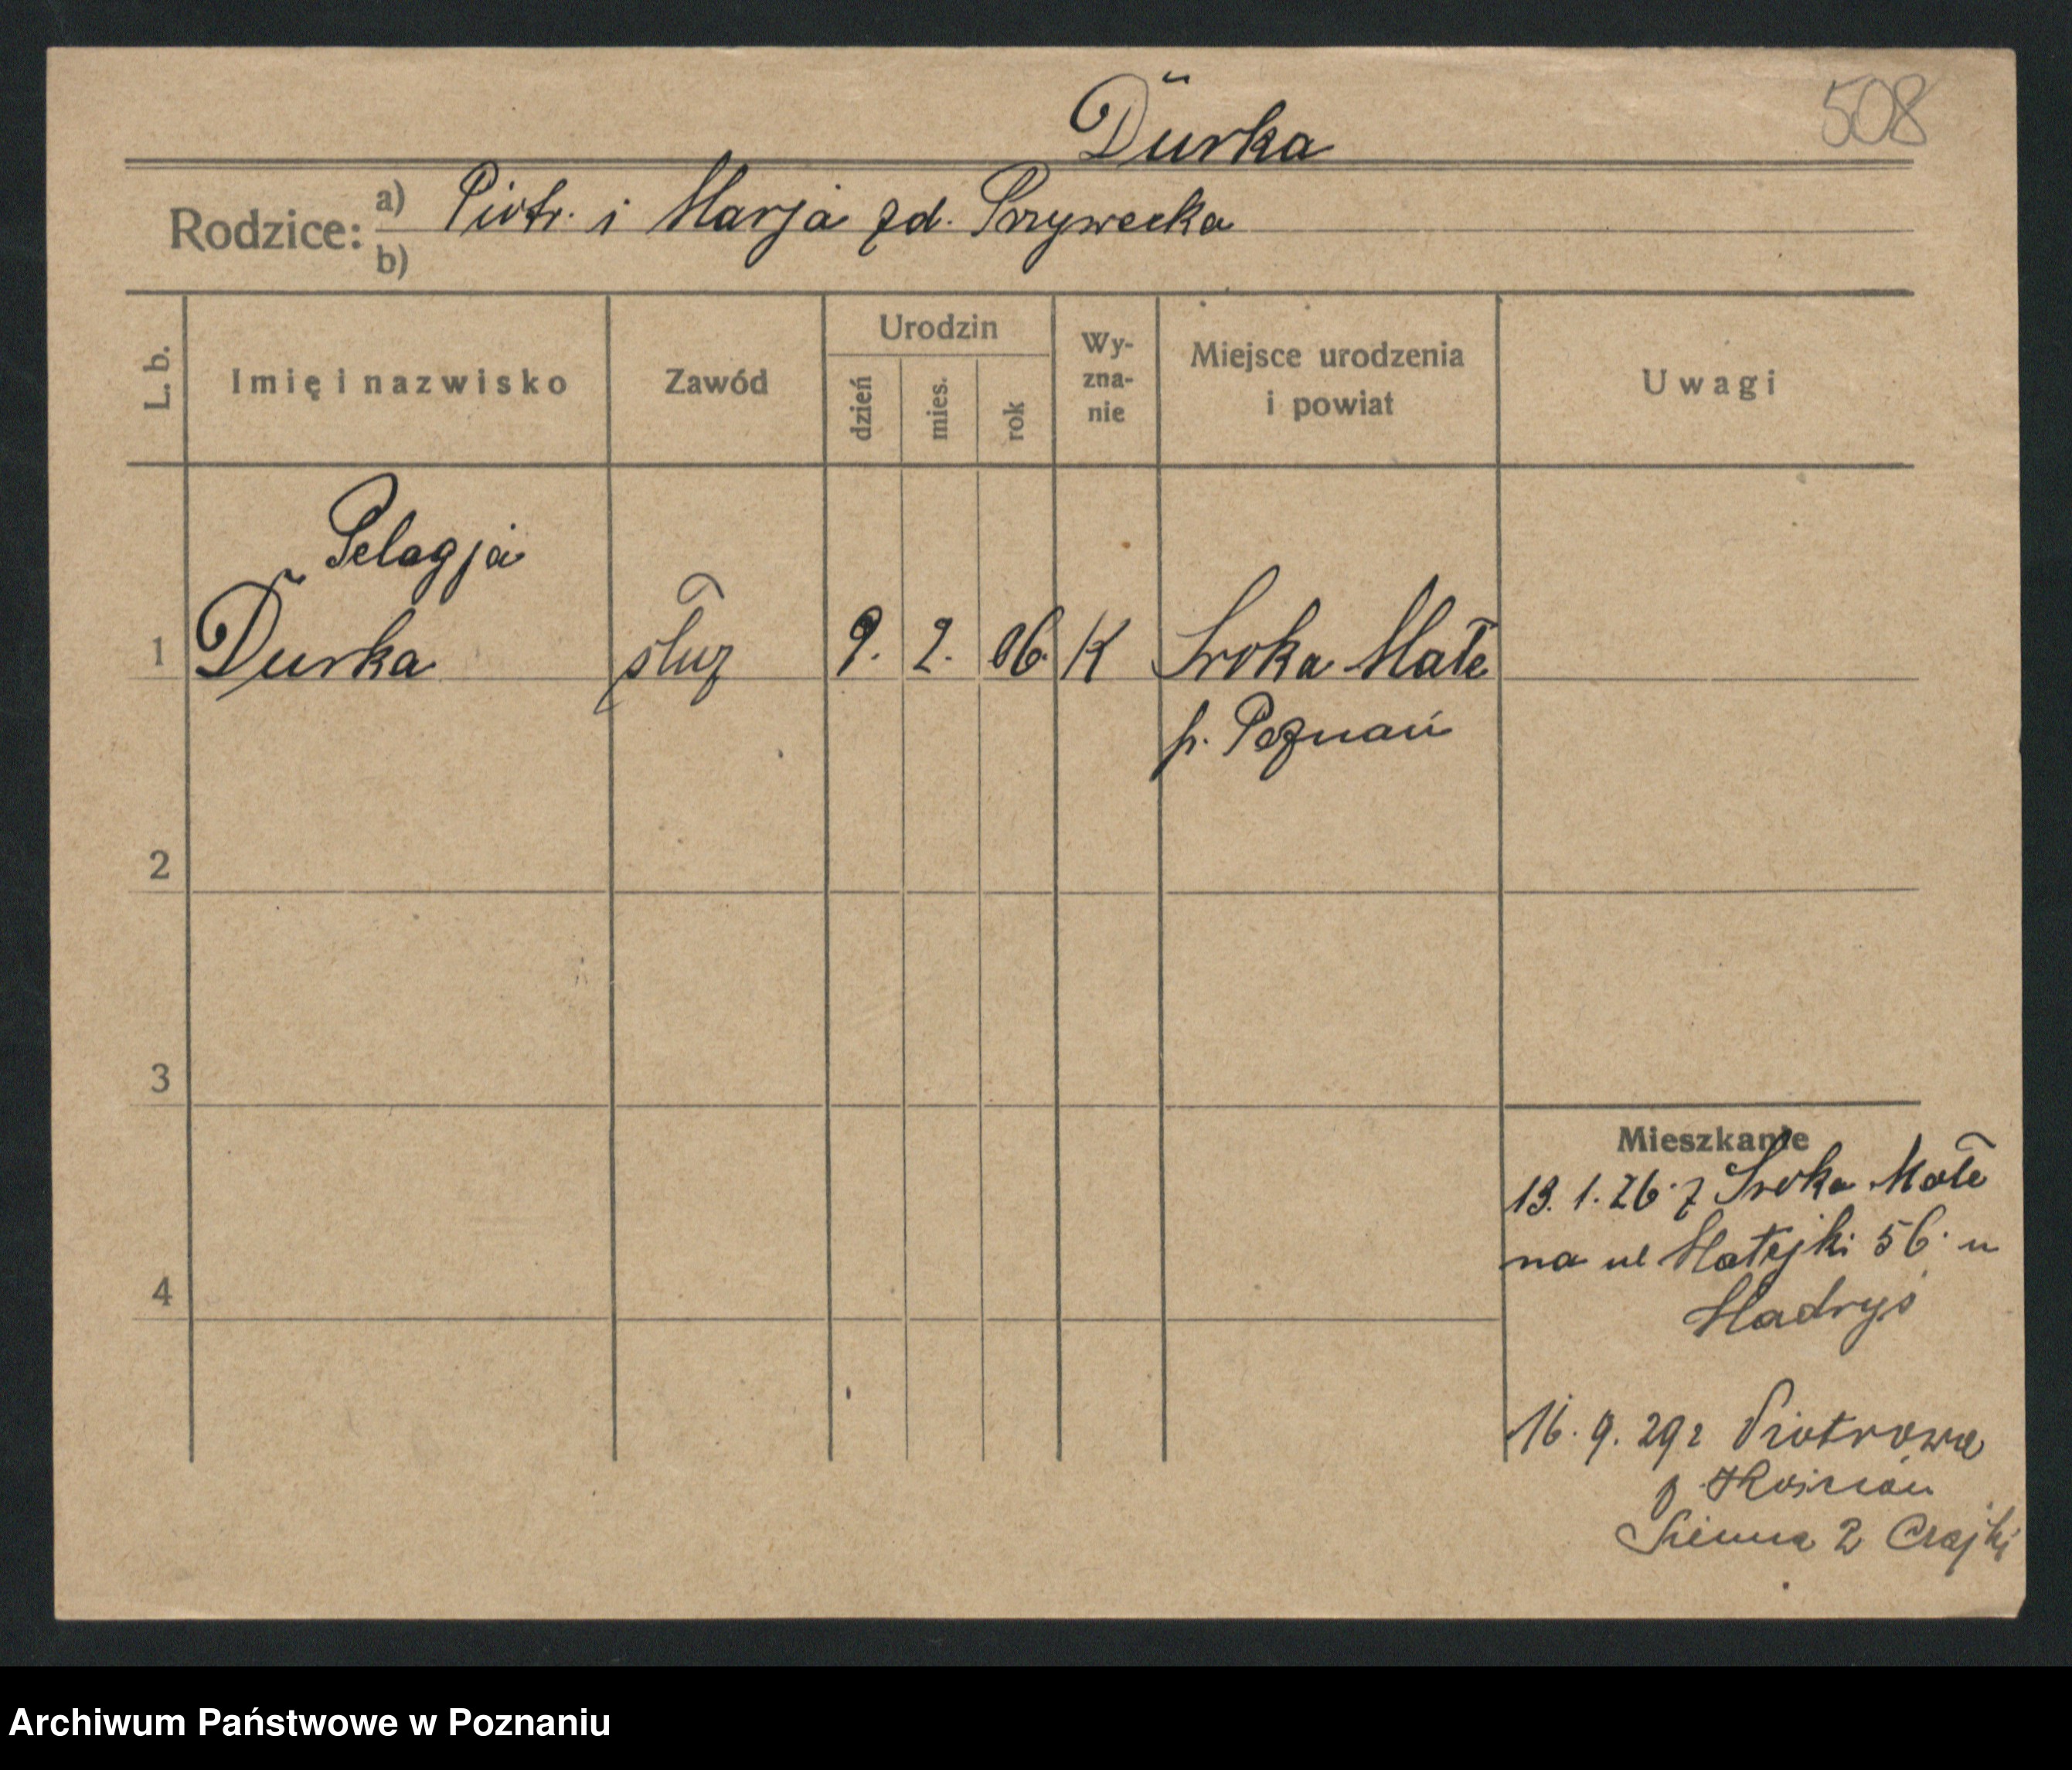 Durka
508
Rodzice: a) Piotr. i Marja zd. Przywecka
b)
L. b. Imię i nazwisko Zawód Urodzin dzień mies. rok Wy-zna-nie Miejsce urodzenia i powiat Uwagi
Pelagja
1 Durka służ 9. 2. 06. K Sroka Małe
p. Poznań
2
3
Mieszkanie
13. 1. 26. z Sroka Małe
na ul Matejki 56. u
4
Madryś
16. 9. 29 Piotrowo
p. Kościan
Sienna 2 Czajki
Archiwum Państwowe w Poznaniu